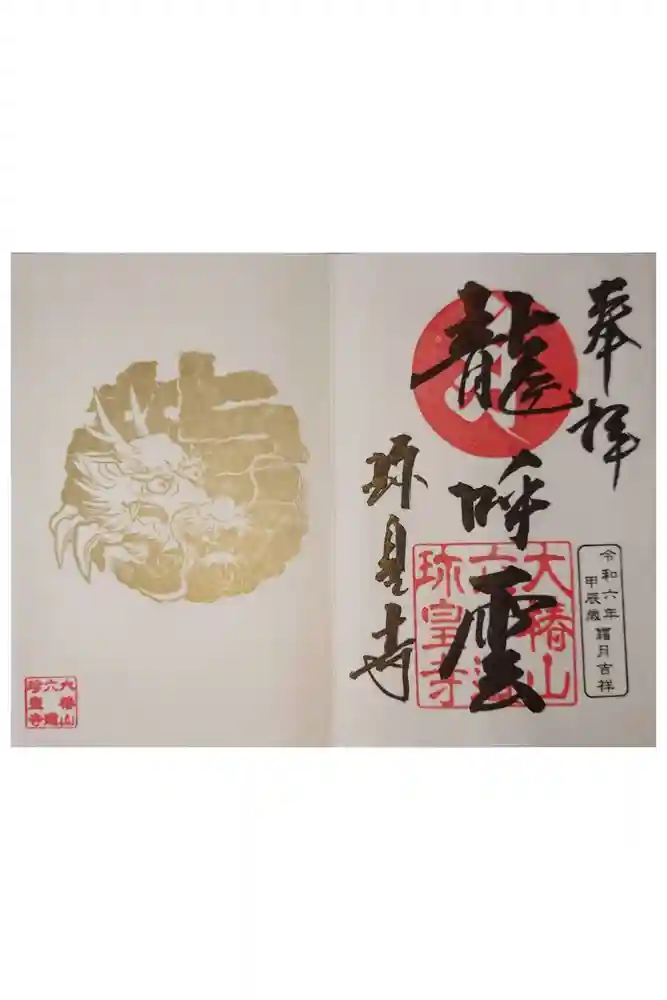 奉拝
令和六年
甲辰歳
霜月吉祥
龍呼雲
大椿山
六道
珎皇寺
珎皇寺
大椿山
六道
珎皇寺